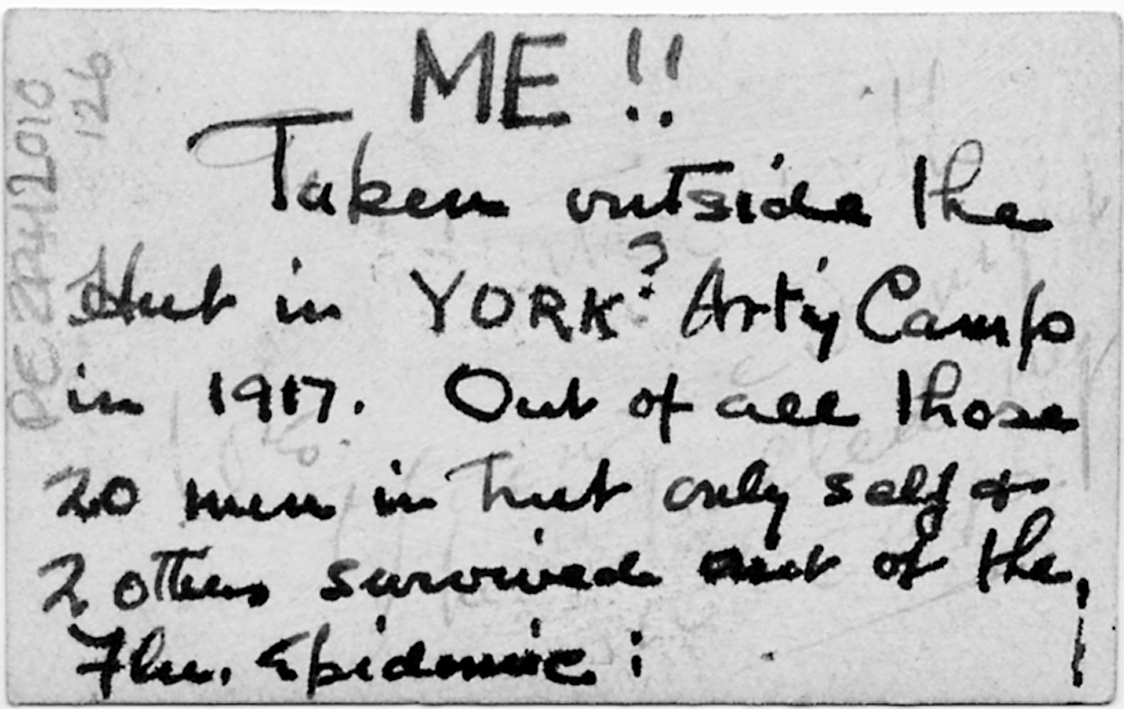 ME !!
Taken outside the
Hut in YORK? Art'y Camp
in 1917. Out of all those
20 men in hut only self &
2 others survived out of the
Flu. Epidemic !
2010
126